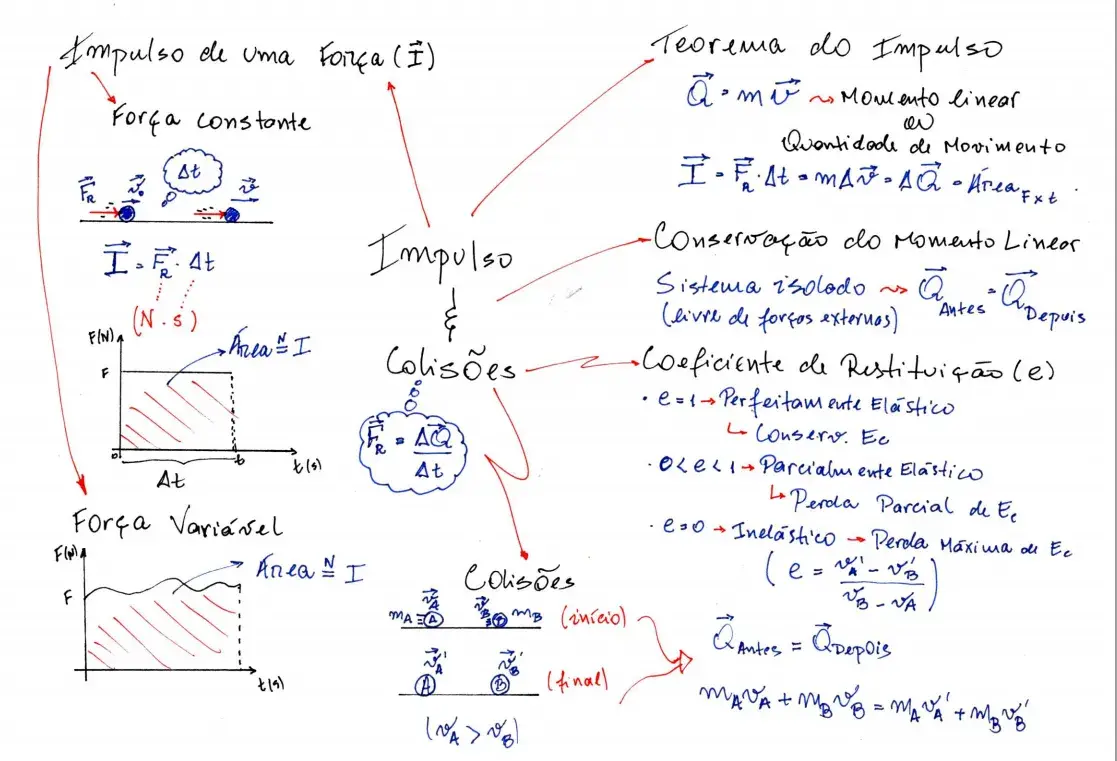 Impulso de uma Força (I⃗)
Força constante
Δt
F⃗_R v⃗₀ v⃗
I⃗ = F⃗_R · Δt
(N · s)
F(N)
Área ≝ᴺ I
F
0 t t(s)
Δt
Força Variável
F(N)
Área ≝ᴺ I
F
t(s)
Impulso
&
Colisões
F⃗_R = ΔQ⃗/Δt
Colisões
m_A v⃗_A A v⃗_B B m_B (início)
v⃗_A' v⃗_B'
A B (final)
(v_A > v_B)
Teorema do Impulso
Q⃗ = m v⃗ → Momento linear
ou
Quantidade de Movimento
I⃗ = F⃗_R · Δt = m Δv⃗ = ΔQ⃗ = Área_F×t
Conservação do Momento Linear
Sistema isolado → Q⃗_Antes = Q⃗_Depois
(livre de forças externas)
Coeficiente de Restituição (e)
• e = 1 → Perfeitamente Elástico
↳ Conserv. Ec
• 0 < e < 1 → Parcialmente Elástico
↳ Perda Parcial de Ec
• e = 0 → Inelástico → Perda Máxima de Ec
(e = (v_A' - v_B')/(v_B - v_A))
Q⃗_Antes = Q⃗_Depois
m_A v_A + m_B v_B = m_A v_A' + m_B v_B'